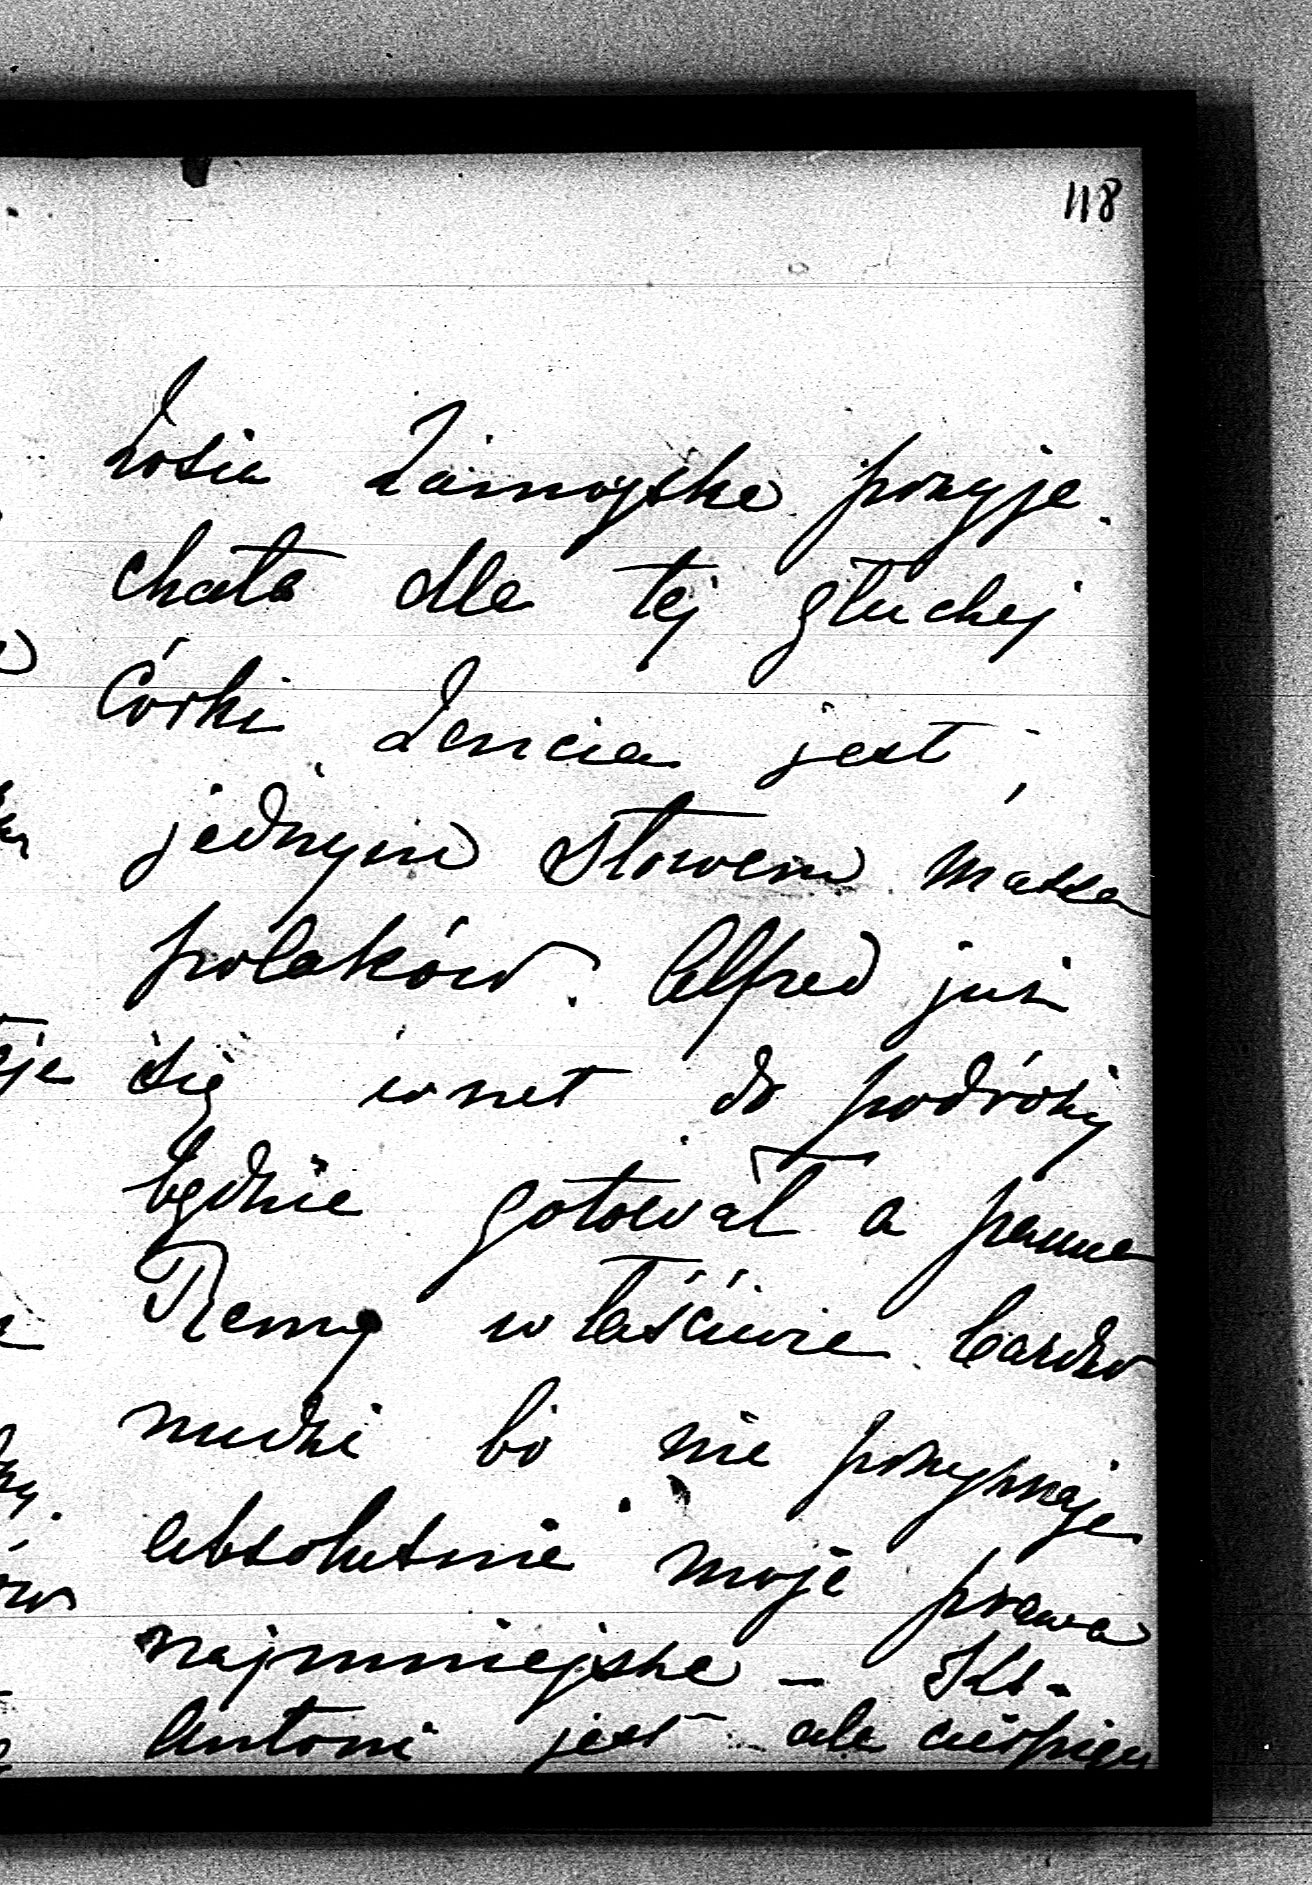 118
Zosia Zamoyska przyje
chała dla tej głuchej
Córki, Zencia jest,
jednym słowem massa
polaków. Alfred już
się wnet do podróży
będzie gotował a panna
Remy właściwie bardzo
nudzi bo nie
absolutnie moje prawa
najmniejsze – Ks.
Antoni jest ale cierpiący